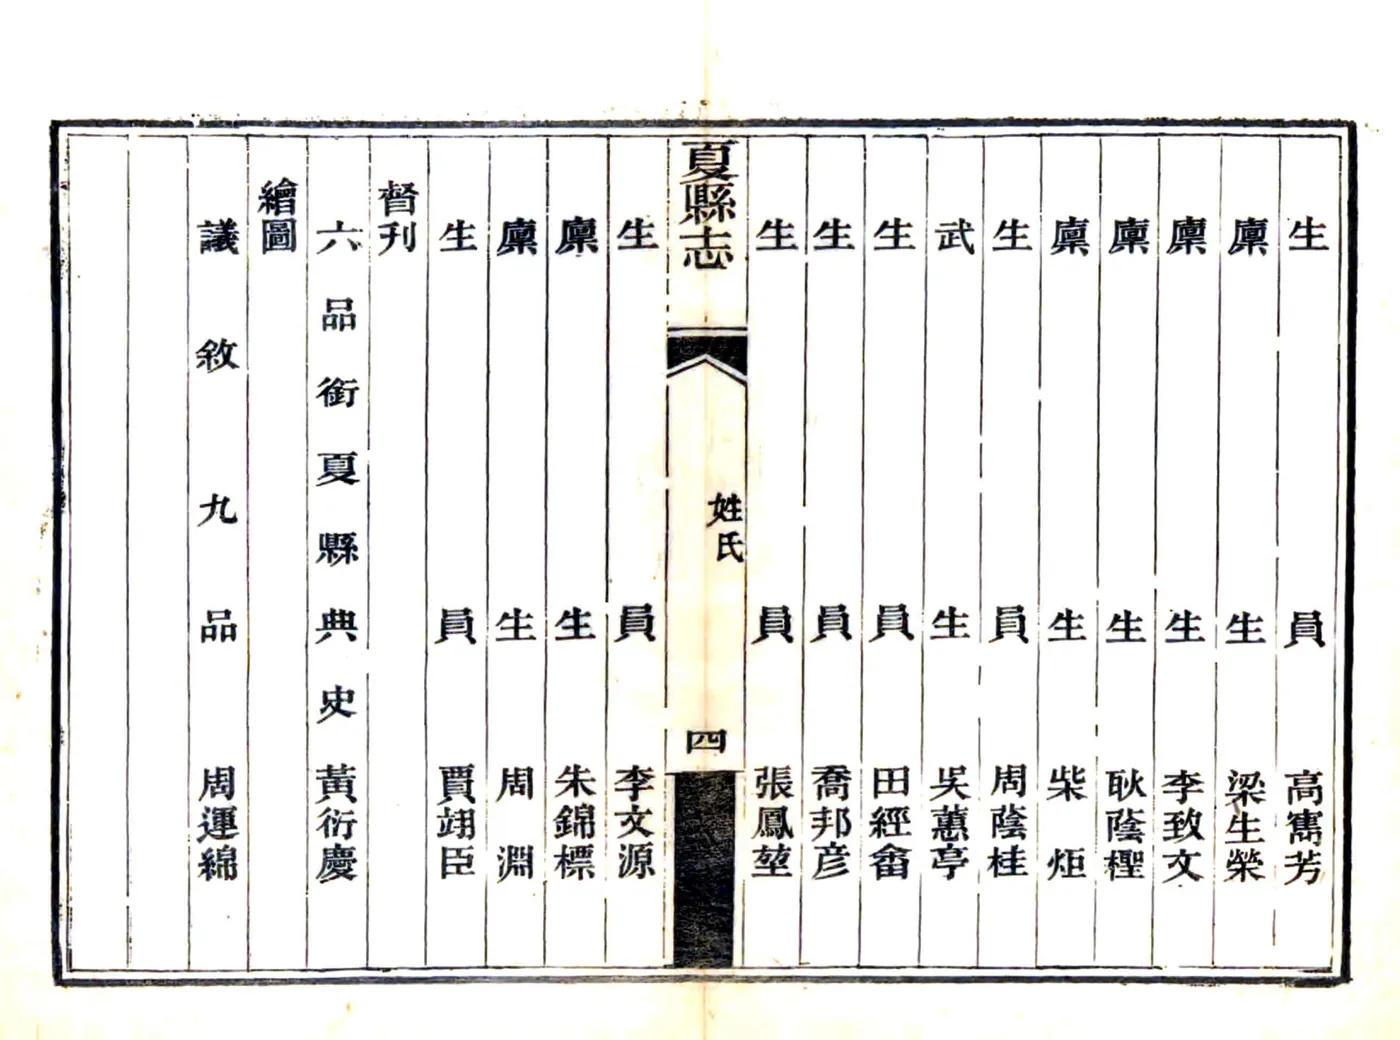 生員高寯芳
廩生梁生榮
廩生李致文
廩生耿蔭檉
廩生柴炬
生員周蔭桂
武生吳蕙亭
生員田經畬
生員喬邦彦
生員張鳳堃
夏縣志
姓氏
四
生員李文源
廩生朱錦標
廩生周淵
生員賈翊臣
督刊
六品銜夏縣典史黃衍慶
繪圖
議敘九品周運綿